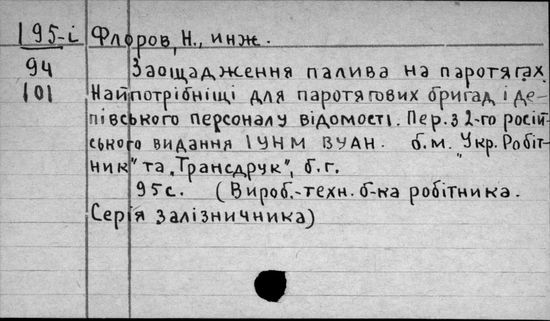 195-і Флоров, Н., инж.
94 Заощадження палива на паротягах.
101 Найпотрібніщі для паротягових бригад і де-
півського персоналу відомості. Пер. з 2-го росій-
ського видання ІУНМ ВУАН. б.м. "Укр. Робіт-
ник" та "Трансдрук", б.г.
95с. (Вироб.-техн. б-ка робітника.
Серія залізничника)